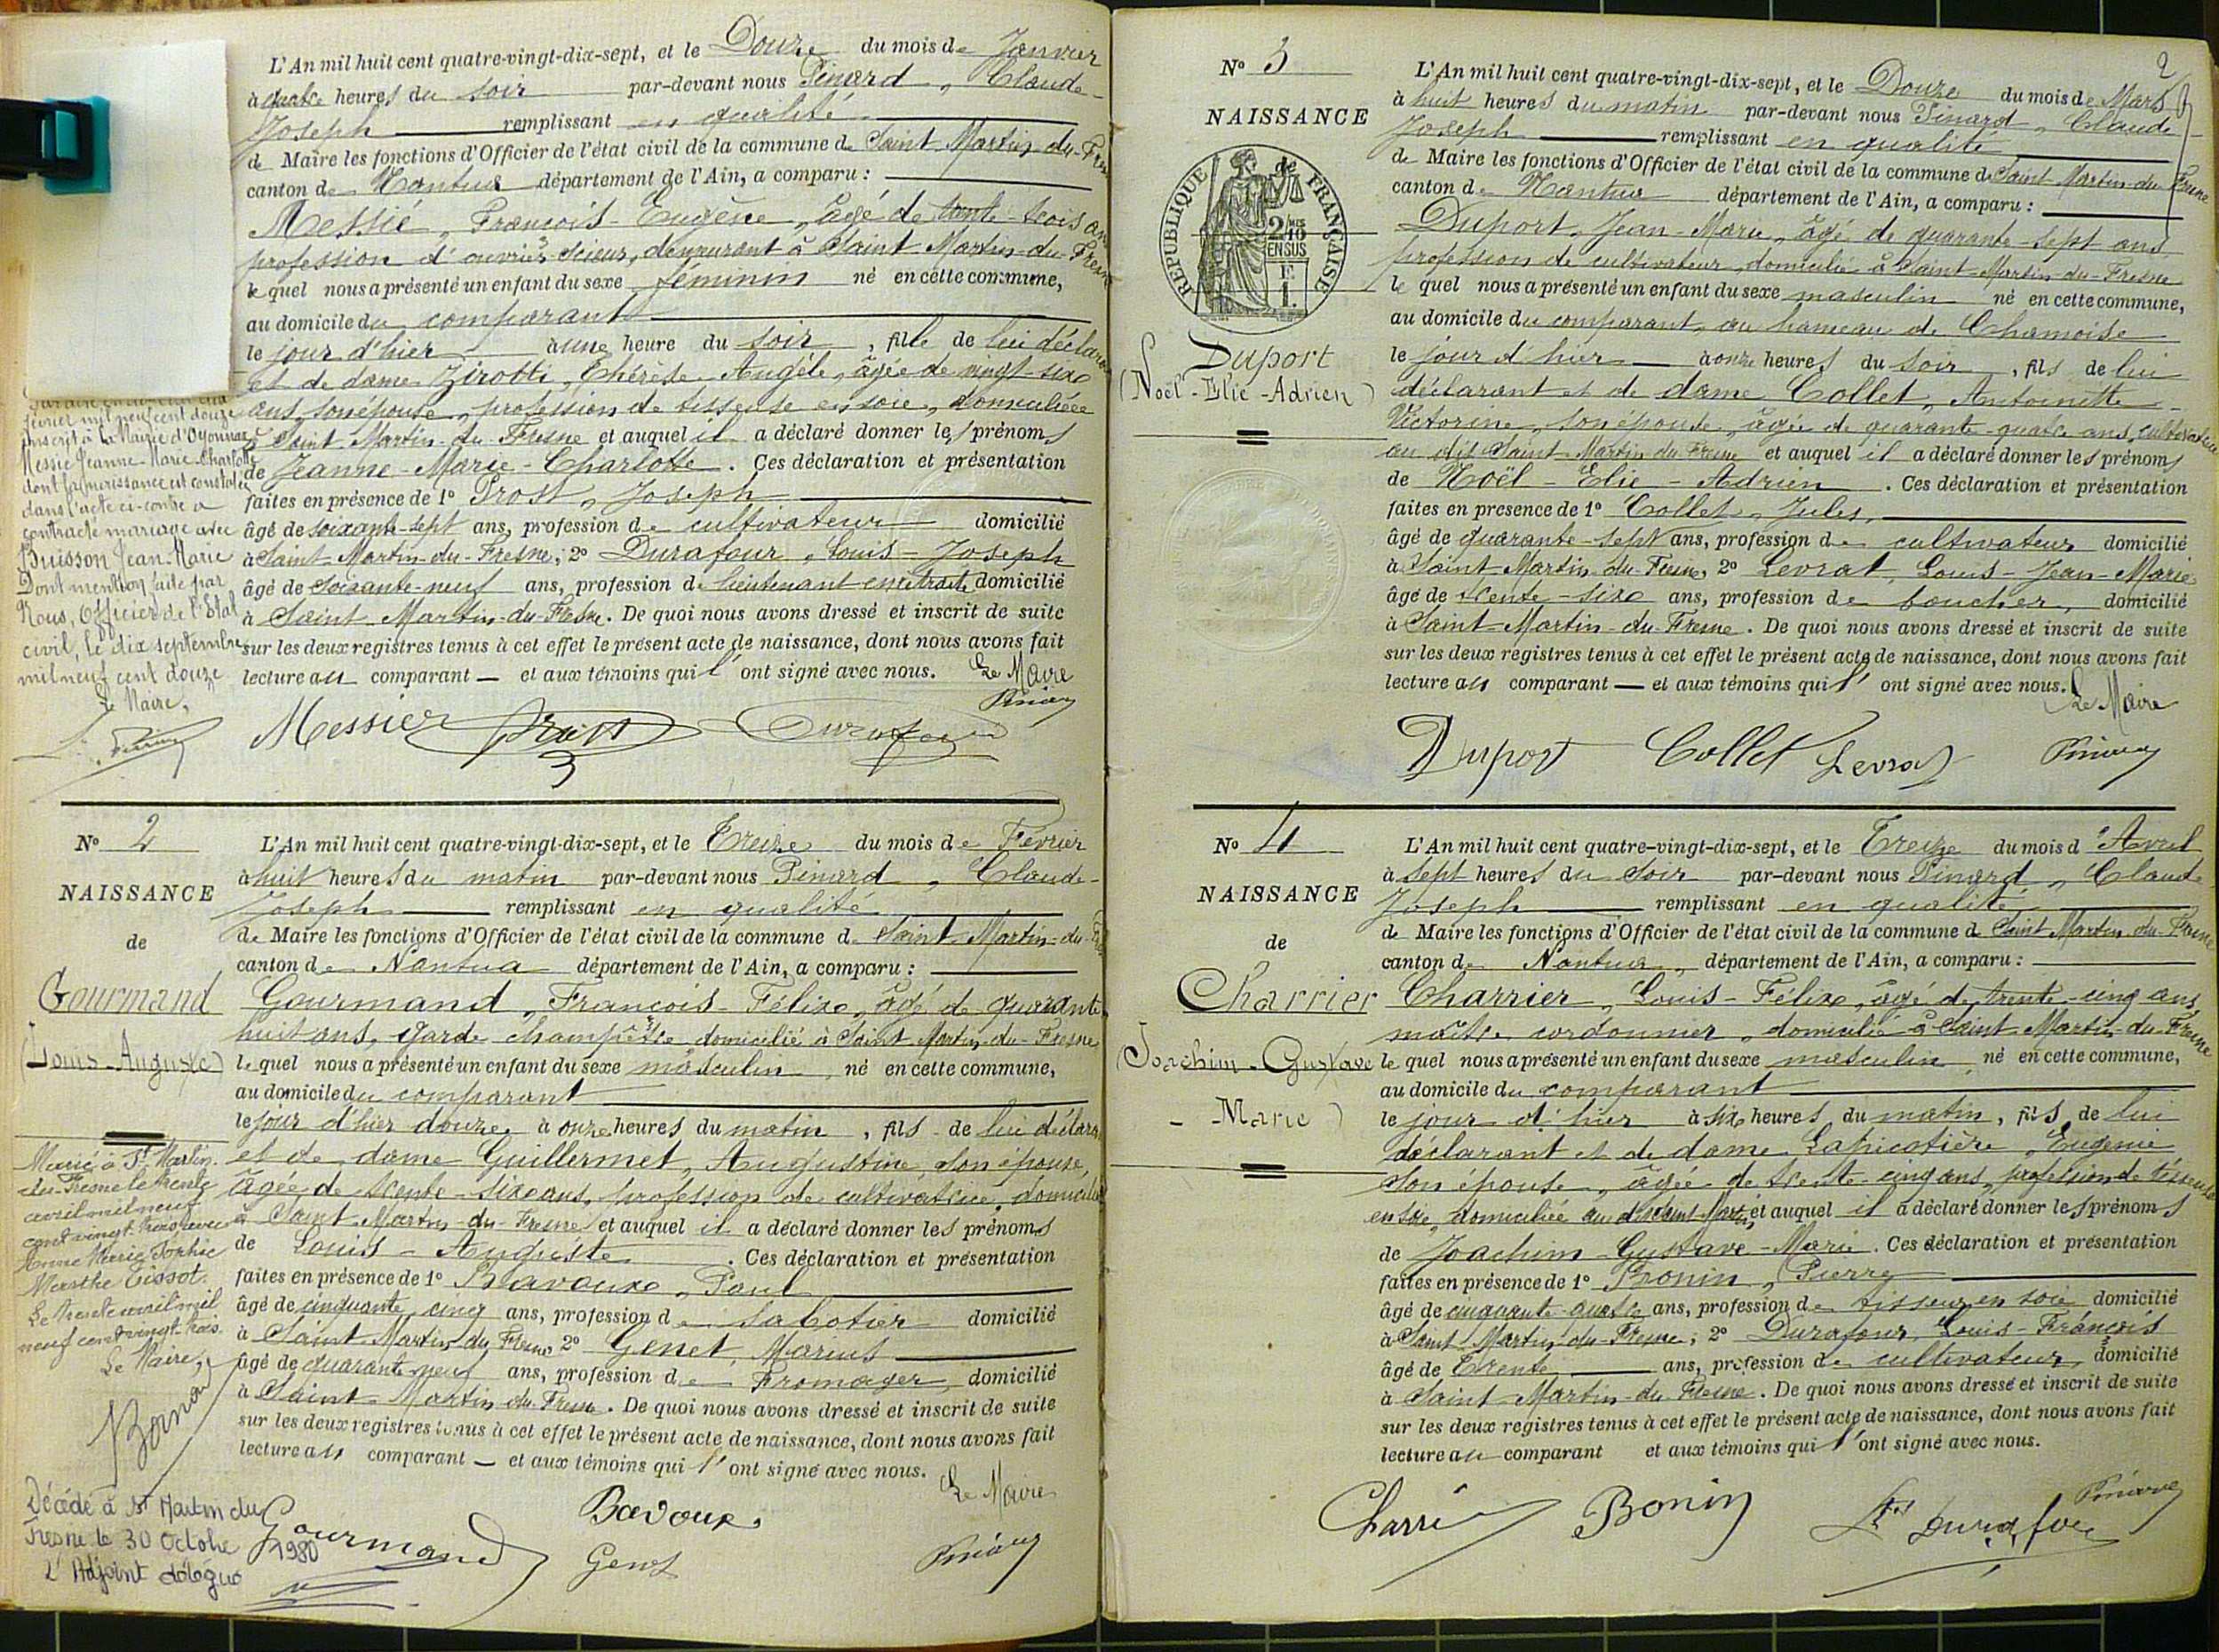 L'An mil huit cent quatre-vingt-dix-sept, et le Douze du mois de Janvier
à quatre heures du soir par-devant nous Pinard, Claude-
Joseph remplissant en qualité
de Maire les fonctions d'Officier de l'état civil de la commune de Saint-Martin-du-Fresne
canton de Nantua département de l'Ain, a comparu :
Messié, François-Eugène, âgé de trente-trois ans
profession d'ouvrier scieur, demeurant à Saint-Martin-du-Fresne
lequel nous a présenté un enfant du sexe féminin né en cette commune,
au domicile du comparant
le jour d'hier à une heure du soir, fille de lui déclarant
et de dame Zirotti, Thérèse-Angèle, âgée de vingt-six
ans, son épouse, profession de tisseuse en soie, domiciliée
à Saint Martin-du-Fresne et auquel il a déclaré donner les prénoms
de Jeanne-Marie-Charlotte. Ces déclaration et présentation
faites en présence de 1° Prost, Joseph
âgé de soixante-sept ans, profession de cultivateur domicilié
à Saint-Martin-du-Fresne; 2° Durafour, Louis-Joseph
âgé de soixante-neuf ans, profession de lieutenant en retraite domicilié
à Saint Martin-du-Fresne. De quoi nous avons dressé et inscrit de suite
sur les deux registres tenus à cet effet le présent acte de naissance, dont nous avons fait
lecture au comparant — et aux témoins qui l'ont signé avec nous. Le Maire
Pinard
Messier Prost Durafour
février mil neuf cent douze
inscrit à la Mairie d'Oyonnax
Messié Jeanne-Marie-Charlotte
dont la naissance est constatée
dans l'acte ci-contre a
contracté mariage avec
Buisson Jean-Marie
Dont mention faite par
Nous, Officier de l'Etat
civil, le dix septembre
mil neuf cent douze
Le Maire,
N° 2
NAISSANCE
de
Gourmand
(Louis-Auguste)
L'An mil huit cent quatre-vingt-dix-sept, et le Treize du mois de Février
à huit heures du matin par-devant nous Pinard, Claude-
Joseph remplissant en qualité
de Maire les fonctions d'Officier de l'état civil de la commune de Saint-Martin-du-Fresne
canton de Nantua département de l'Ain, a comparu :
Gourmand, François-Félix, âgé de quarante
huit ans, garde champêtre domicilié à Saint Martin-du-Fresne
lequel nous a présenté un enfant du sexe masculin, né en cette commune,
au domicile du comparant
le jour d'hier douze, à onze heures du matin, fils de lui déclarant
et de dame Guillermet, Augustine, son épouse,
âgée de trente-six ans, profession de cultivatrice, domiciliée
à Saint Martin-du-Fresne et auquel il a déclaré donner les prénoms
de Louis-Auguste. Ces déclaration et présentation
faites en présence de 1° Bavoux, Paul
âgé de cinquante cinq ans, profession de sabotier domicilié
à Saint Martin du Fresne 2° Genet, Marius
âgé de quarante neuf ans, profession de Fromager, domicilié
à Saint-Martin-du-Fresne. De quoi nous avons dressé et inscrit de suite
sur les deux registres tenus à cet effet le présent acte de naissance, dont nous avons fait
lecture au comparant — et aux témoins qui l'ont signé avec nous.
Le Maire
Bavoux
Gourmand Genet Pinard
Marié à St Martin-
du-Fresne le trente
avril mil neuf
cent vingt-trois avec
Anne Marie Sophie
Marthe Tissot.
Le trente avril mil
neuf cent vingt-trois.
Le Maire,
Décédé à St Martin du
Fresne le 30 Octobre
1980
L'Adjoint délégué
2
N° 3
NAISSANCE
de
REPUBLIQUE FRANÇAISE
2/10 EN SUS
Duport
(Noël-Elie-Adrien)
L'An mil huit cent quatre-vingt-dix-sept, et le Douze du mois de Mars
à huit heures du matin par-devant nous Pinard, Claude-
Joseph remplissant en qualité
de Maire les fonctions d'Officier de l'état civil de la commune de Saint-Martin-du-Fresne
canton de Nantua département de l'Ain, a comparu :
Duport, Jean-Marie, âgé de quarante-sept ans,
profession de cultivateur, domicilié à Saint-Martin-du-Fresne
lequel nous a présenté un enfant du sexe masculin né en cette commune,
au domicile du comparant, au hameau de Chamoise
le jour d'hier à onze heures du soir, fils de lui
déclarant et de dame Collet, Antoinette-
Victorine, son épouse, âgée de quarante-quatre ans, cultivatrice
au dit Saint-Martin du Fresne et auquel il a déclaré donner les prénoms
de Noël-Elie-Adrien. Ces déclaration et présentation
faites en présence de 1° Collet, Jules,
âgé de quarante-sept ans, profession de cultivateur domicilié
à Saint-Martin du Fresne, 2° Levrat, Louis-Jean-Marie
âgé de trente-six ans, profession de boucher, domicilié
à Saint-Martin-du-Fresne. De quoi nous avons dressé et inscrit de suite
sur les deux registres tenus à cet effet le présent acte de naissance, dont nous avons fait
lecture au comparant — et aux témoins qui l'ont signé avec nous. Le Maire
Duport Collet Levrat Pinard
N° 4
NAISSANCE
de
Charrier
(Joachim-Gustave
-Marie)
L'An mil huit cent quatre-vingt-dix-sept, et le Treize du mois d'Avril
à sept heures du soir par-devant nous Pinard, Claude-
Joseph remplissant en qualité
de Maire les fonctions d'Officier de l'état civil de la commune de Saint Martin-du-Fresne
canton de Nantua, département de l'Ain, a comparu :
Charrier, Louis-Félix, âgé de trente-cinq ans,
maître cordonnier, domicilié à Saint-Martin-du-Fresne
lequel nous a présenté un enfant du sexe masculin, né en cette commune,
au domicile du comparant
le jour d'hier à six heures du matin, fils de lui
déclarant et de dame Lapicotière, Eugénie
son épouse, âgée de trente-cinq ans, profession de tisseuse
en soie, domiciliée au dit Saint Martin, et auquel il a déclaré donner les prénoms
de Joachim-Gustave-Marie. Ces déclaration et présentation
faites en présence de 1° Bonin, Pierre
âgé de cinquante-quatre ans, profession de tisseur en soie domicilié
à Saint-Martin-du-Fresne; 2° Durafour, Louis-François
âgé de Trente ans, profession de cultivateur, domicilié
à Saint-Martin-du-Fresne. De quoi nous avons dressé et inscrit de suite
sur les deux registres tenus à cet effet le présent acte de naissance, dont nous avons fait
lecture au comparant et aux témoins qui l'ont signé avec nous.
Charrier Bonin Ls Durafour Pinard